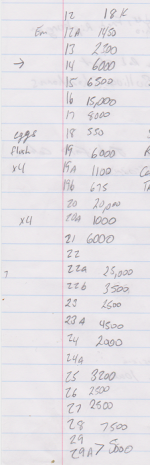 12 18K
12A 1450
13 2700
→ 14 6000
15 6500
16 15,000
17 8000
eggs 18 550
flush 19 6000
x4 19A 1100
19b 675
20 20,000
x4 20A 1000
21 6000
22
22a 25,000
22b 3500
23 2500
23A 4500
24 2000
24A
25 3200
26 2500
27 2500
28 7500
29
29A > 5000